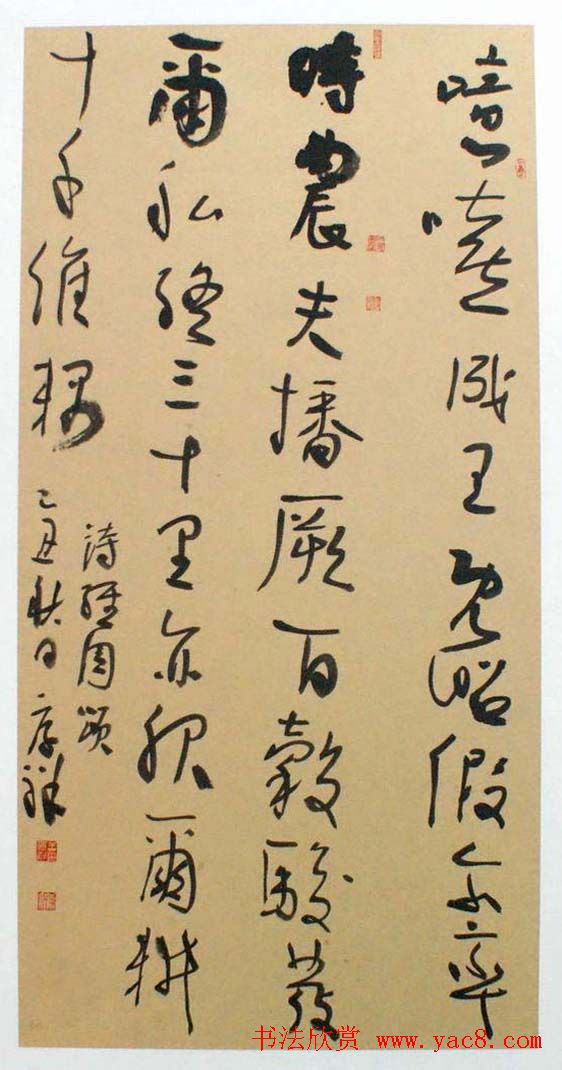 噫嘻成王既昭假尔率
時農夫播厥百穀駿發
爾私終三十里亦服爾耕
十千維耦
詩經周頌
丑秋日
书法欣赏 www.yac8.com